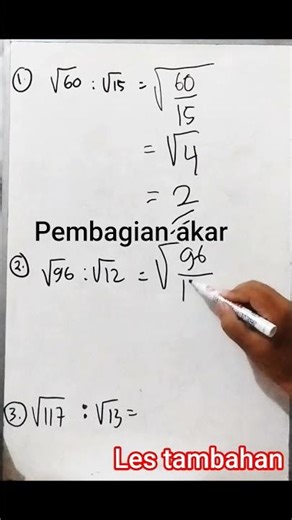 1. √60 : √15 = √60/15
= √4
= 2
Pembagian akar
2. √96 : √12 = √96/1
3. √117 : √13 =
Les tambahan